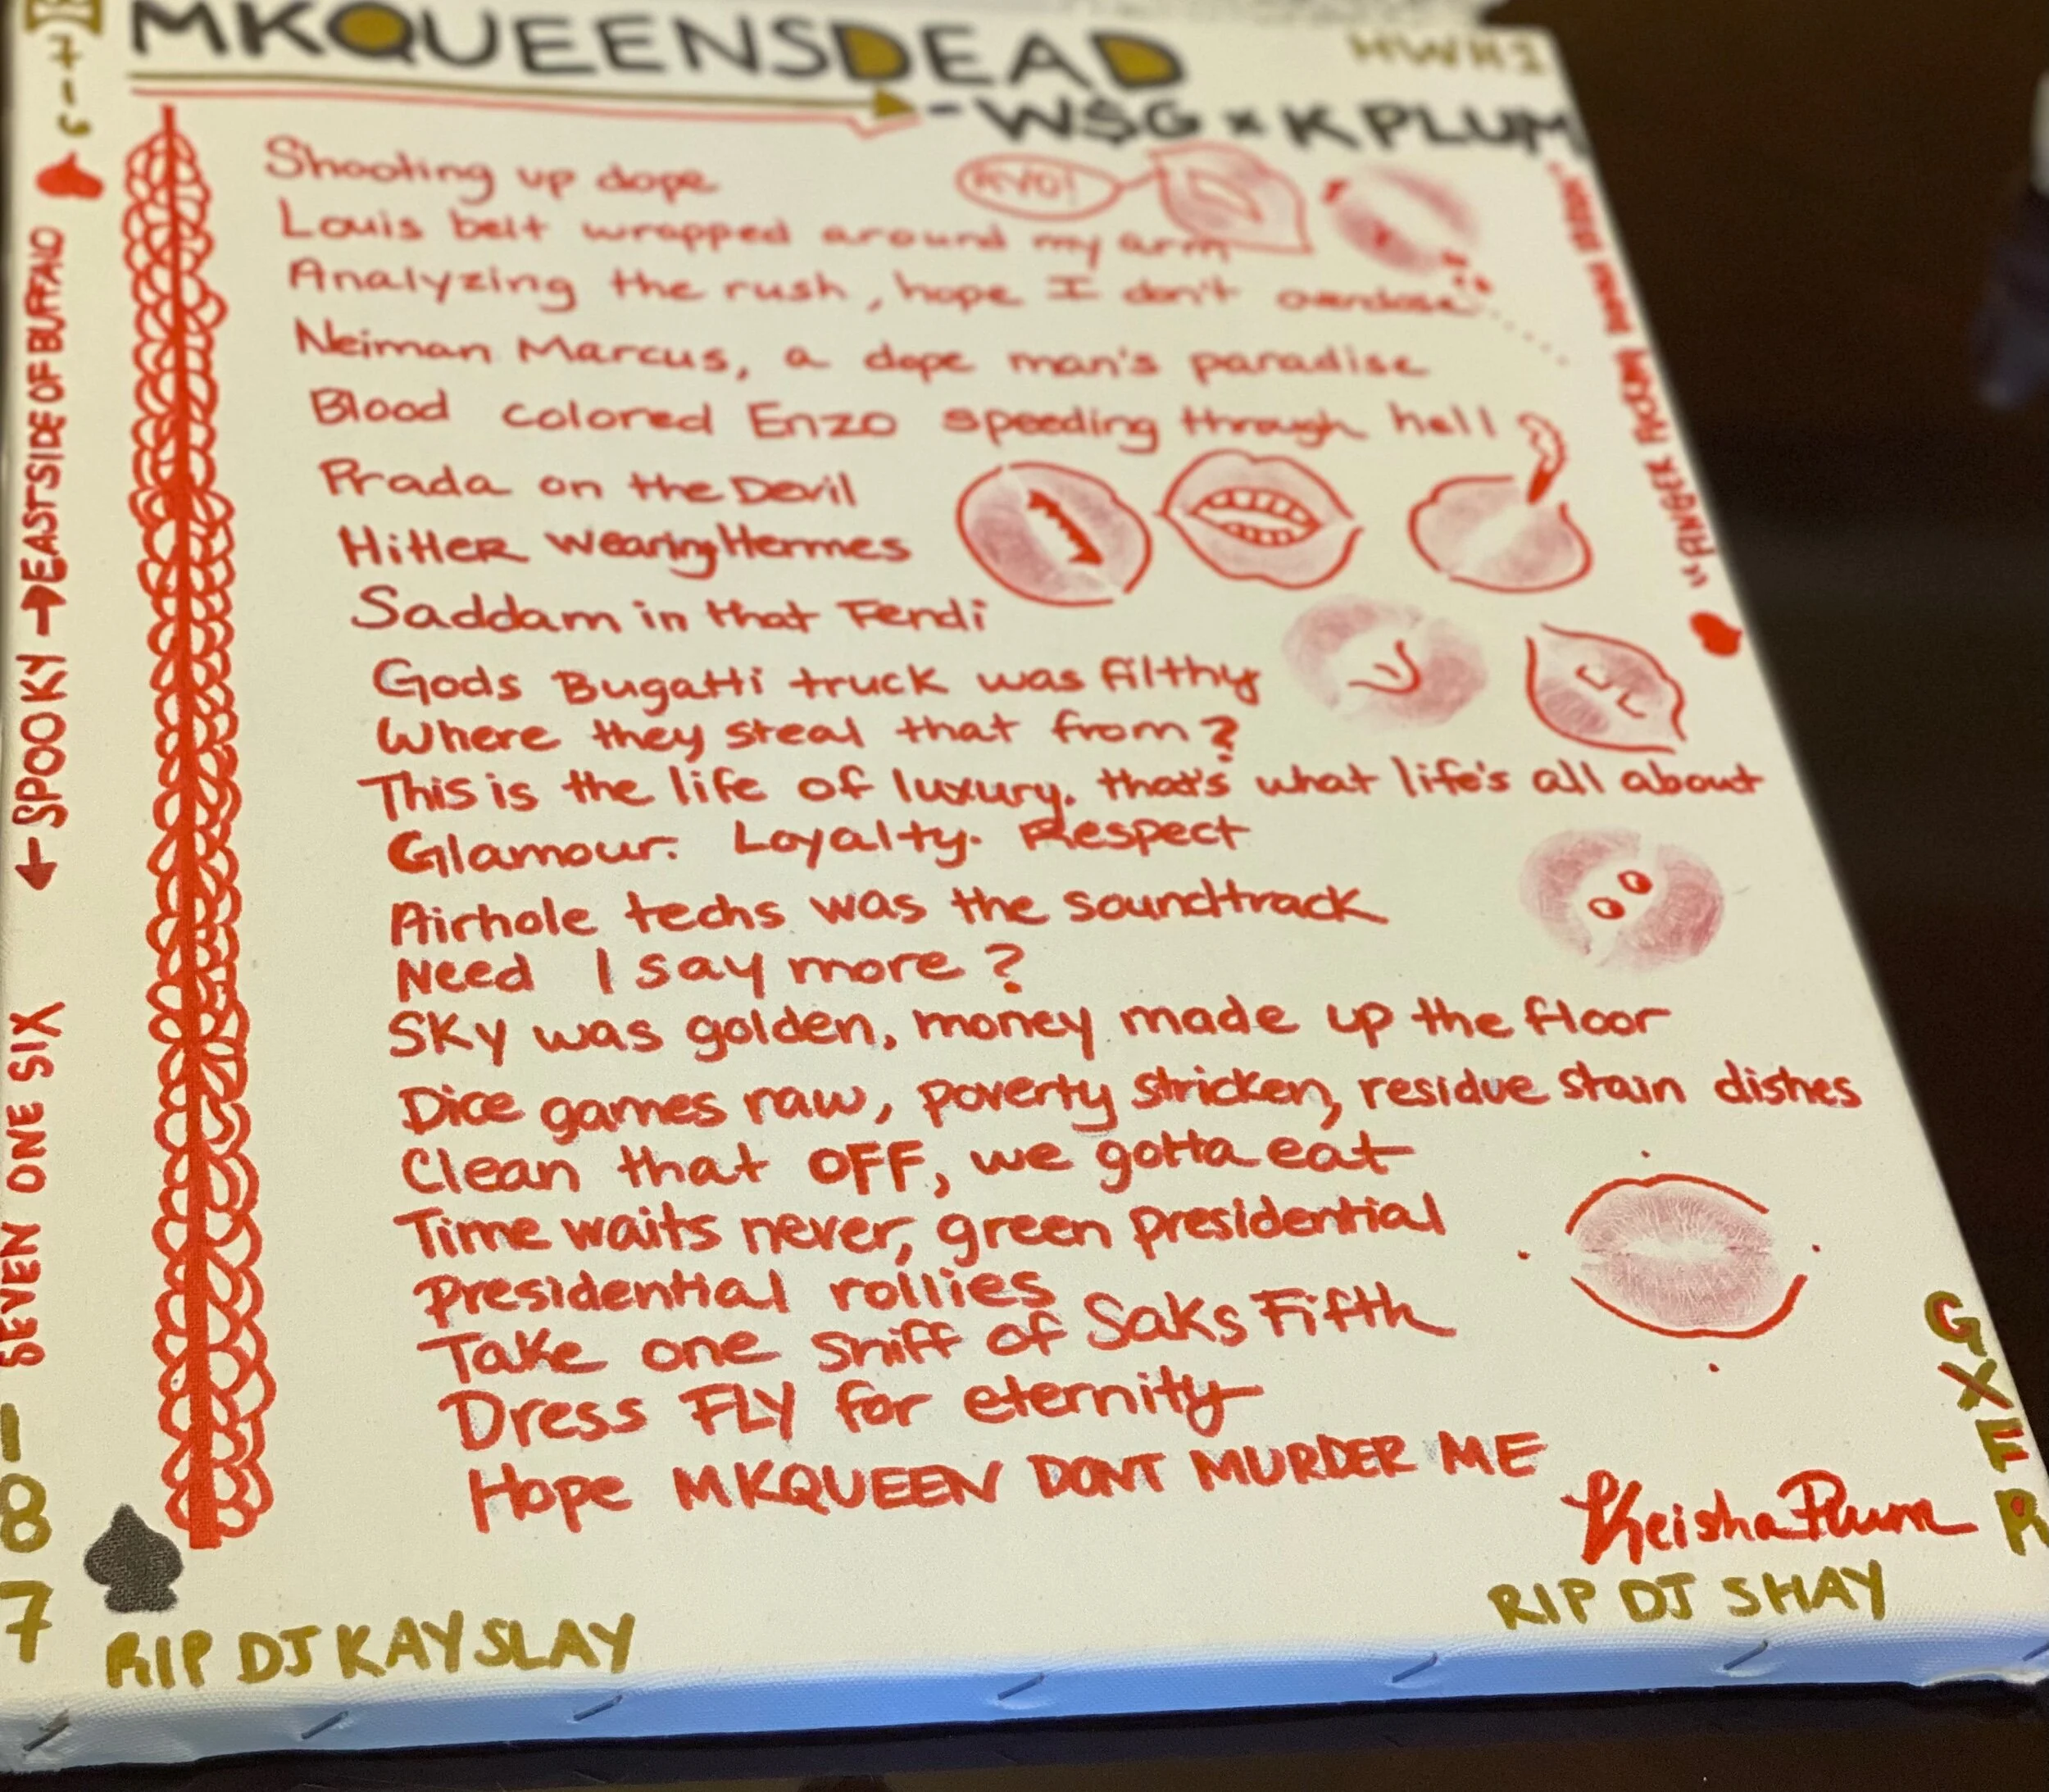 MKQUEENSDEAD
HWH1
- W$G x K PLUM
AYO!
Shooting up dope
Louis belt wrapped around my arm
Analyzing the rush, hope I don't overdose
Neiman Marcus, a dope man's paradise
Blood colored Enzo speeding through hell
Prada on the Devil
HitlER wearing Hermes
Saddam in that Fendi
Gods Bugatti truck was filthy
Where they steal that from?
This is the life of luxury. that's what life's all about
Glamour. Loyalty. Respect
Airhole techs was the soundtrack
Need I say more?
Sky was golden, money made up the floor
Dice games raw, poverty stricken, residue stain dishes
Clean that OFF, we gotta eat
Time waits never, green presidential
Presidential rollies
Take one sniff of Saks Fifth
Dress FLY for eternity
Hope MKQUEEN DONT MURDER ME
Keisha Plum
RIP DJ SHAY
RIP DJ KAYSLAY
GXFR
SEVEN ONE SIX
← SPOOKY → EASTSIDE OF BUFFALO
1
8
7